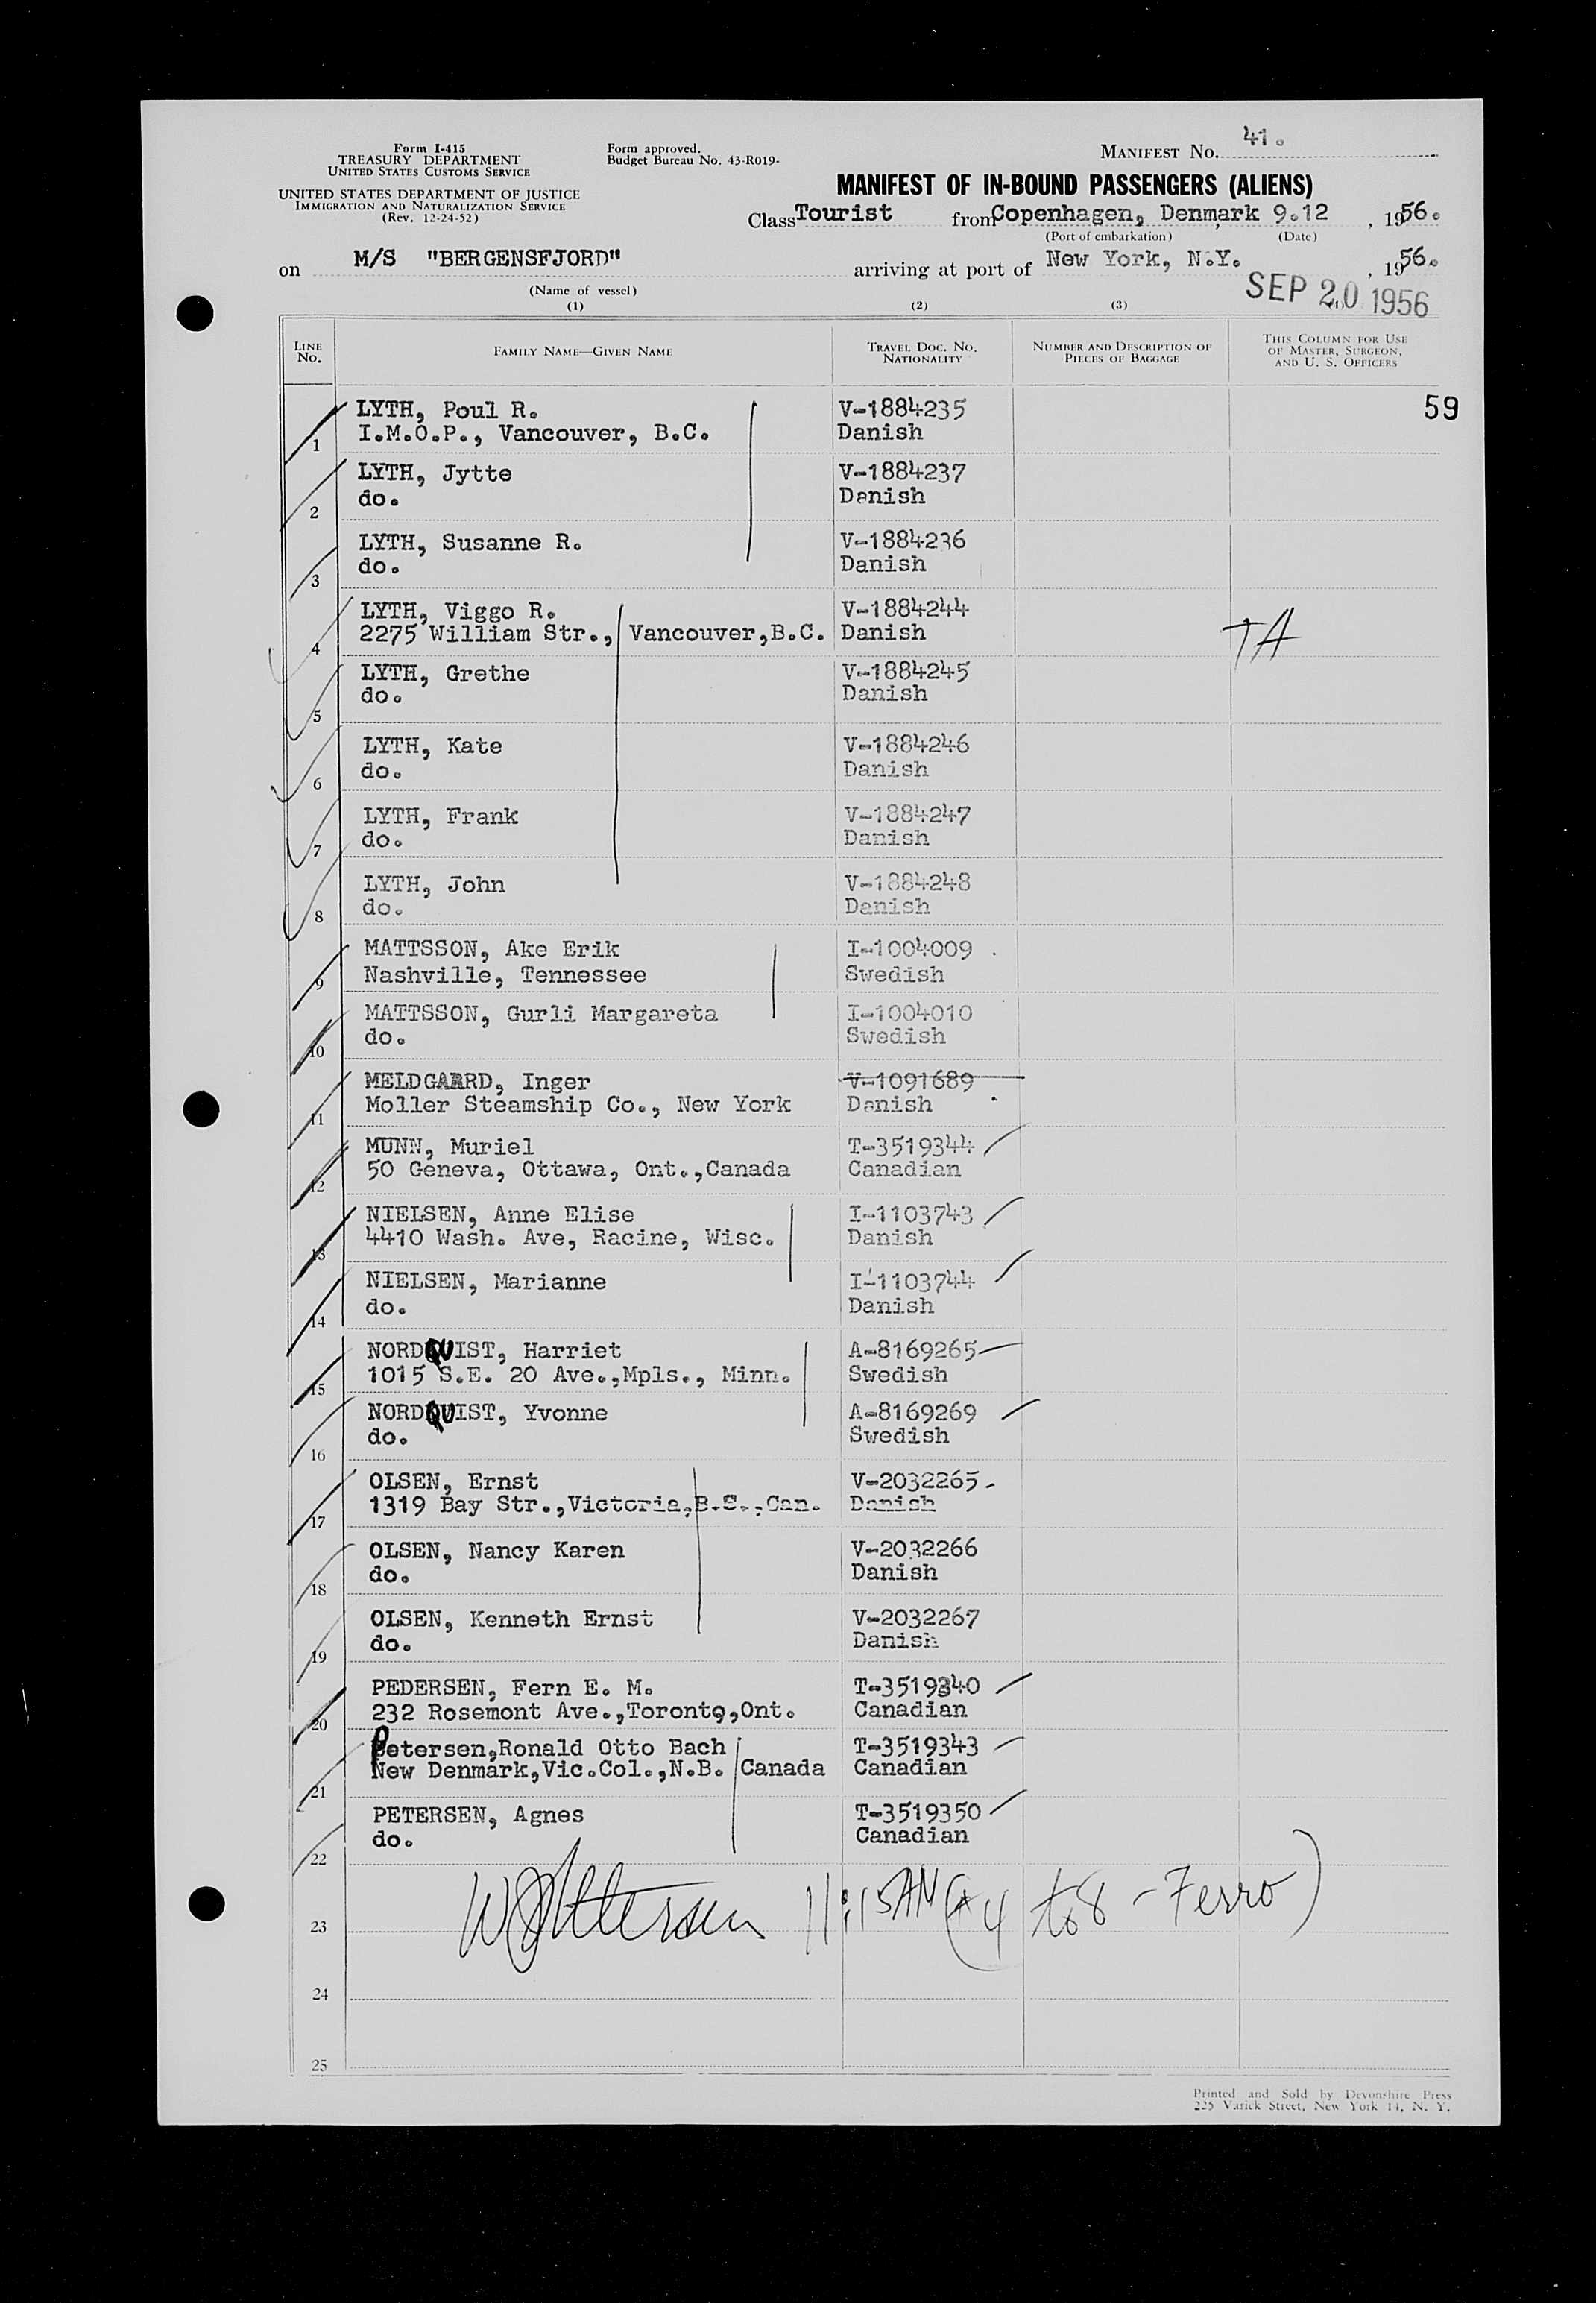 Form I-415
TREASURY DEPARTMENT
UNITED STATES CUSTOMS SERVICE
UNITED STATES DEPARTMENT OF JUSTICE
IMMIGRATION AND NATURALIZATION SERVICE
(Rev. 12-24-52)
Form approved.
Budget Bureau No. 43-R019-
MANIFEST No. 41.
MANIFEST OF IN-BOUND PASSENGERS (ALIENS)
Class Tourist from Copenhagen, Denmark 9.12, 1956.
(Port of embarkation) (Date)
on M/S "BERGENSFJORD" arriving at port of New York, N.Y., 1956.
(Name of vessel)
SEP 20 1956
(1) (2) (3)
LINE No. FAMILY NAME—GIVEN NAME TRAVEL DOC. NO. NATIONALITY NUMBER AND DESCRIPTION OF PIECES OF BAGGAGE THIS COLUMN FOR USE OF MASTER, SURGEON, AND U. S. OFFICERS
59
1 LYTH, Poul R. V-1884235
I.M.O.P., Vancouver, B.C. Danish
2 LYTH, Jytte V-1884237
do. Danish
3 LYTH, Susanne R. V-1884236
do. Danish
4 LYTH, Viggo R. V-1884244
2275 William Str., Vancouver,B.C. Danish TA
5 LYTH, Grethe V-1884245
do. Danish
6 LYTH, Kate V-1884246
do. Danish
7 LYTH, Frank V-1884247
do. Danish
8 LYTH, John V-1884248
do. Danish
9 MATTSSON, Ake Erik I-1004009
Nashville, Tennessee Swedish
10 MATTSSON, Gurli Margareta I-1004010
do. Swedish
11 MELDGAARD, Inger V-1091689
Moller Steamship Co., New York Danish
12 MUNN, Muriel T-3519344
50 Geneva, Ottawa, Ont.,Canada Canadian
13 NIELSEN, Anne Elise I-1103743
4410 Wash. Ave, Racine, Wisc. Danish
14 NIELSEN, Marianne I-1103744
do. Danish
15 NORDQUIST, Harriet A-8169265
1015 S.E. 20 Ave.,Mpls., Minn. Swedish
16 NORDQUIST, Yvonne A-8169269
do. Swedish
17 OLSEN, Ernst V-2032265
1319 Bay Str.,Victoria,B.C.,Can. Danish
18 OLSEN, Nancy Karen V-2032266
do. Danish
19 OLSEN, Kenneth Ernst V-2032267
do. Danish
20 PEDERSEN, Fern E. M. T-3519340
232 Rosemont Ave.,Toronto,Ont. Canadian
21 Petersen,Ronald Otto Bach T-3519343
New Denmark,Vic.Col.,N.B. Canada Canadian
22 PETERSEN, Agnes T-3519350
do. Canadian
23 11:15AM ( 4 to 8 - Ferro)
24
25
Printed and Sold by Devonshire Press
225 Varick Street, New York 14, N. Y.